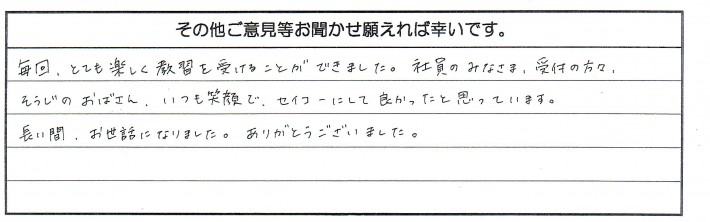 その他ご意見等お聞かせ願えれば幸いです。
毎回、とても楽しく教習を受けることができました。社員のみなさま、受付の方々、
そうじのおばさん、いつも笑顔で、セイコーにして良かったと思っています。
長い間、お世話になりました。ありがとうございました。